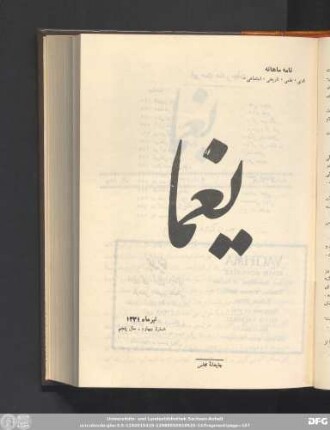 نامه ماهانه
ادبی، علمی، تاریخی، اجتماعی
یغما
تیر ماه ۱۳۳۱
شماره چهارم، سال پنجم
چاپخانهٔ مجلس
Universitäts- und Landesbibliothek Sachsen-Anhalt
DFG